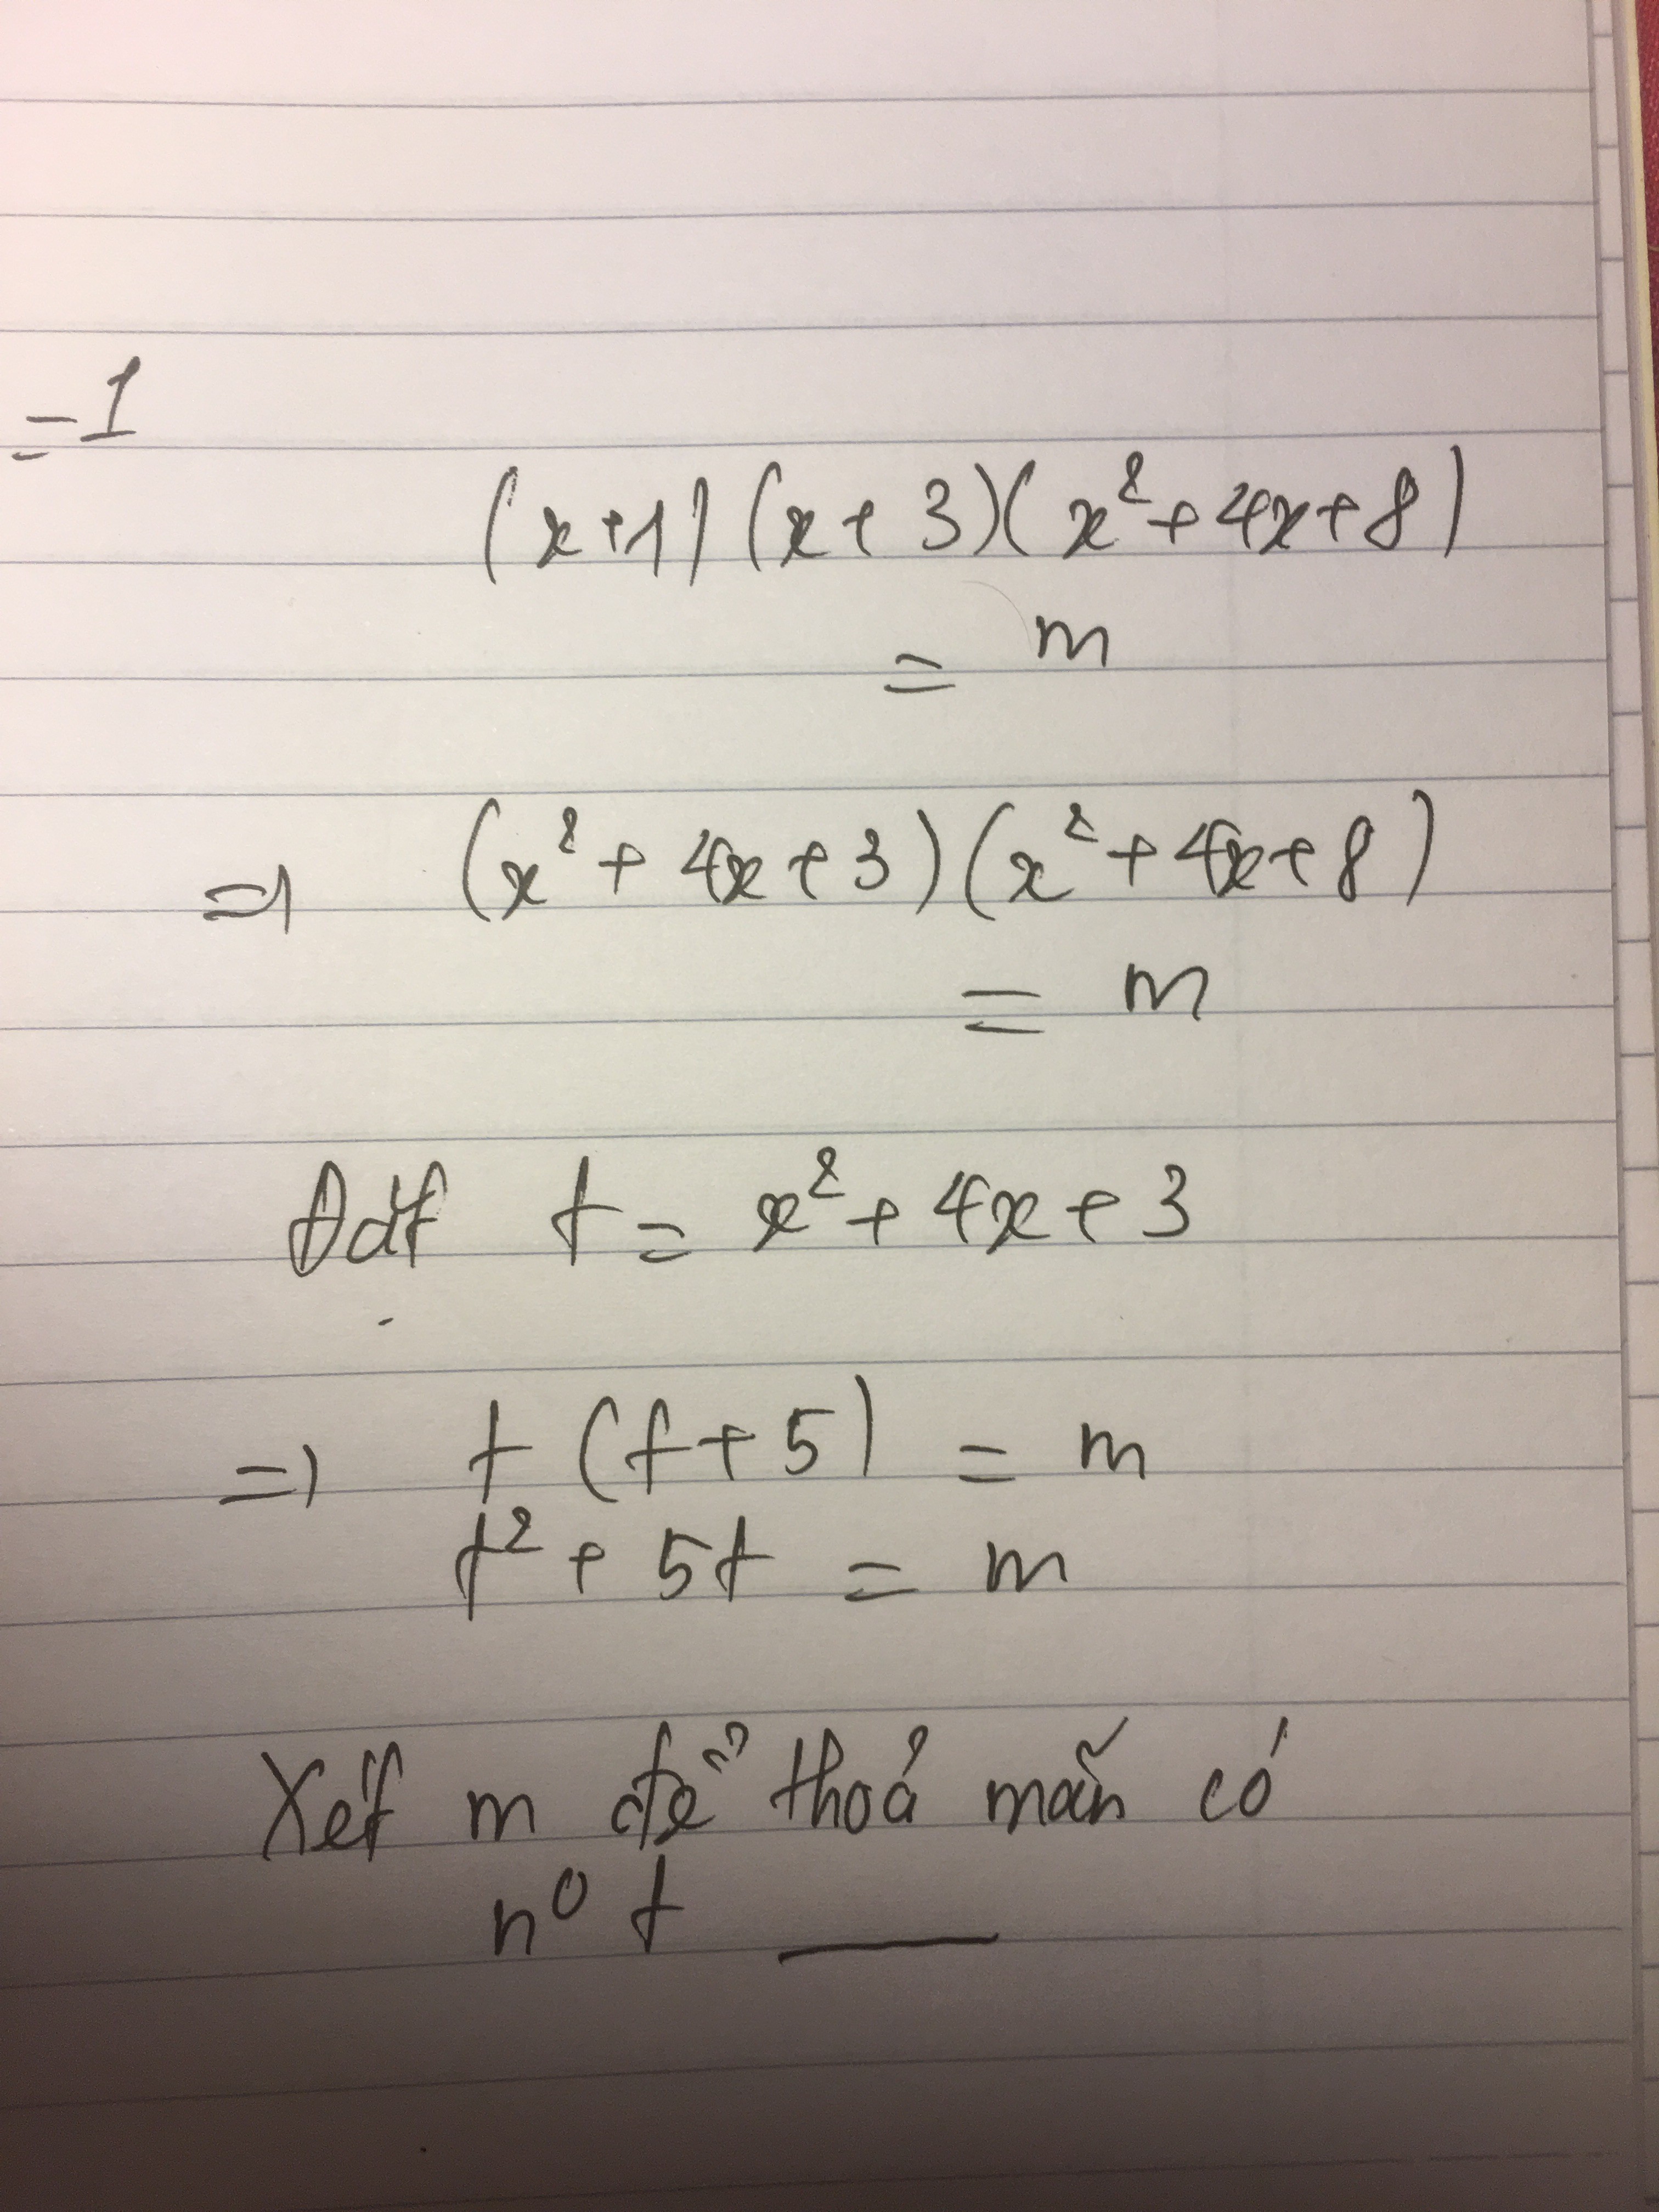 = 1
(x+1)(x+3)(x²+4x+8)
= m
=> (x²+4x+3)(x²+4x+8)
= m
Đặt t = x²+4x+3
=> t(t+5) = m
t²+5t = m
Xét m để thoả mãn có
n⁰ t